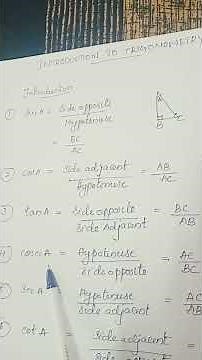 INTRODUCTION TO TRIGONOMETRY
Introduction
① Sin A = Side opposite / Hypotenuse
= BC / AC
② cos A = Side adjacent / Hypotenuse = AB / AC
③ Tan A = Side opposite / Side Adjacent = BC / AB
cosec A = Hypotenuse / side opposite = AC / BC
Sec A = Hypotenuse / side adjacent = AC / AB
cot A = Side adjacent
A
B
C